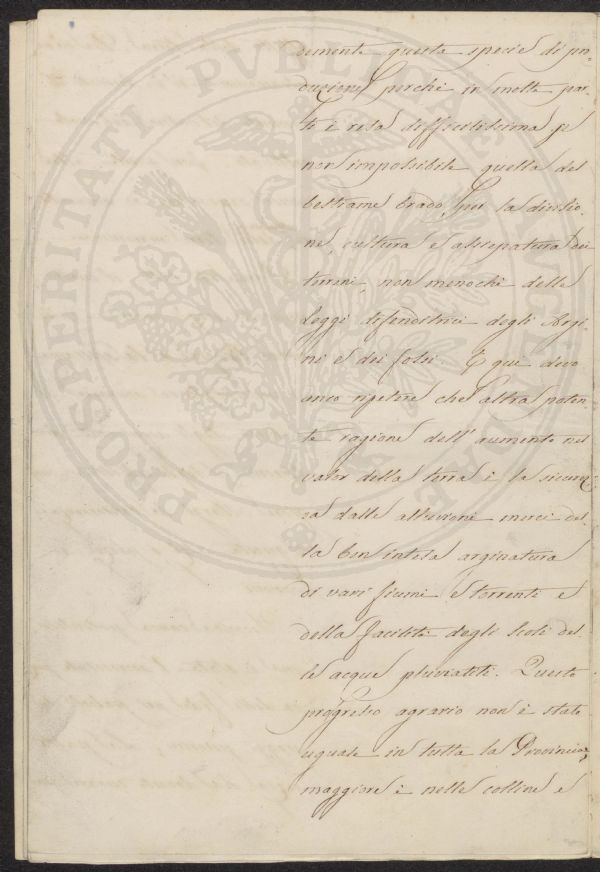 PROSPERITATI PUBLICAE AUGENDAE
cemente questa specie di pro-
duzione perché in molte par-
ti è resa difficilissima se
non impossibile quella del
bestiame brado, per la divisio-
ne, cultura e assiepatura dei
terreni, non menochè delle
Leggi difenditrici degli Argi-
ni e dei fossi. E qui devo
anco ripetere che altra poten-
te ragione dell'aumento nel
valor della terra è la sicurez-
za dalle alluvioni mercè del-
la ben intesa arginatura
di vari fiumi e torrenti e
della facilità degli scoli del-
le acque pluviatili. Questo
progresso agrario non è stato
uguale in tutta la Provincia,
maggiore è nelle colline e